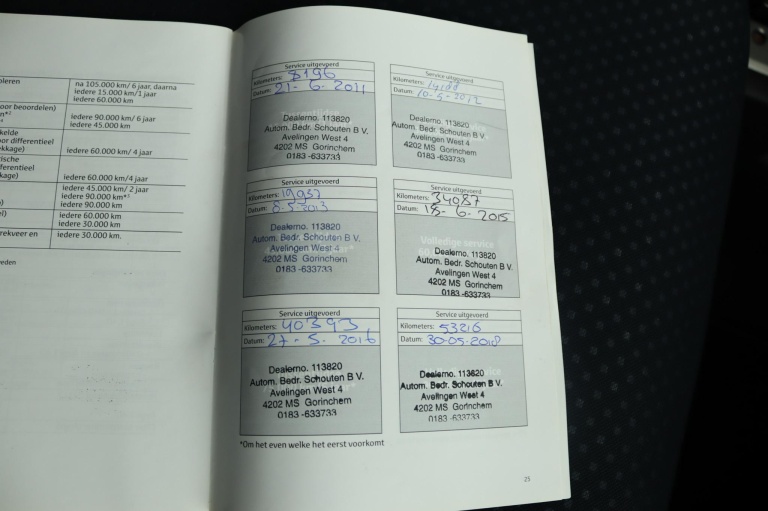 oleren
na 105.000 km/ 6 jaar, daarna
iedere 15.000 km/1 jaar
iedere 60.000 km
oor beoordelen)
iedere 90.000 km/ 6 jaar
iedere 45.000 km
kelde
or differentieel
kkage)
iedere 60.000 km/ 4 jaar
rische
fferentieel
kage)
iedere 60.000 km/4 jaar
iedere 45.000 km/ 2 jaar
iedere 90.000 km*³
iedere 90.000 km
iedere 60.000 km
iedere 30.000 km.
rekveer en
iedere 30.000 km.
eden
Service uitgevoerd
Kilometers: 8196
Datum: 21-6-2011
Dealerno. 113820
Autom. Bedr. Schouten B V.
Avelingen West 4
4202 MS Gorinchem
0183-633733
Service uitgevoerd
Kilometers:
Datum: 10-5-2012
Dealerno. 113820
Autom. Bedr. Schouten B V.
Avelingen West 4
4202 MS Gorinchem
0183-633733
Service uitgevoerd
Kilometers: 19937
Datum: 8-5-2013
Dealerno. 113820
Autom. Bedr. Schouten B V.
Avelingen West 4
4202 MS Gorinchem
0183-633733
Service uitgevoerd
Kilometers: 34087
Datum: 15-6-2015
Volledige service
Dealerno. 113820
Autom. Bedr. Schouten B V.
Avelingen West 4
4202 MS Gorinchem
0183-633733
Service uitgevoerd
Kilometers: 40393
Datum: 27-5-2016
Dealerno. 113820
Autom. Bedr. Schouten B V.
Avelingen West 4
4202 MS Gorinchem
0183-633733
Service uitgevoerd
Kilometers: 53216
Datum: 30-05-2018
Dealerno. 113820
Autom. Bedr. Schouten B V.
Avelingen West 4
4202 MS Gorinchem
0183-633733
*Om het even welke het eerst voorkomt
25